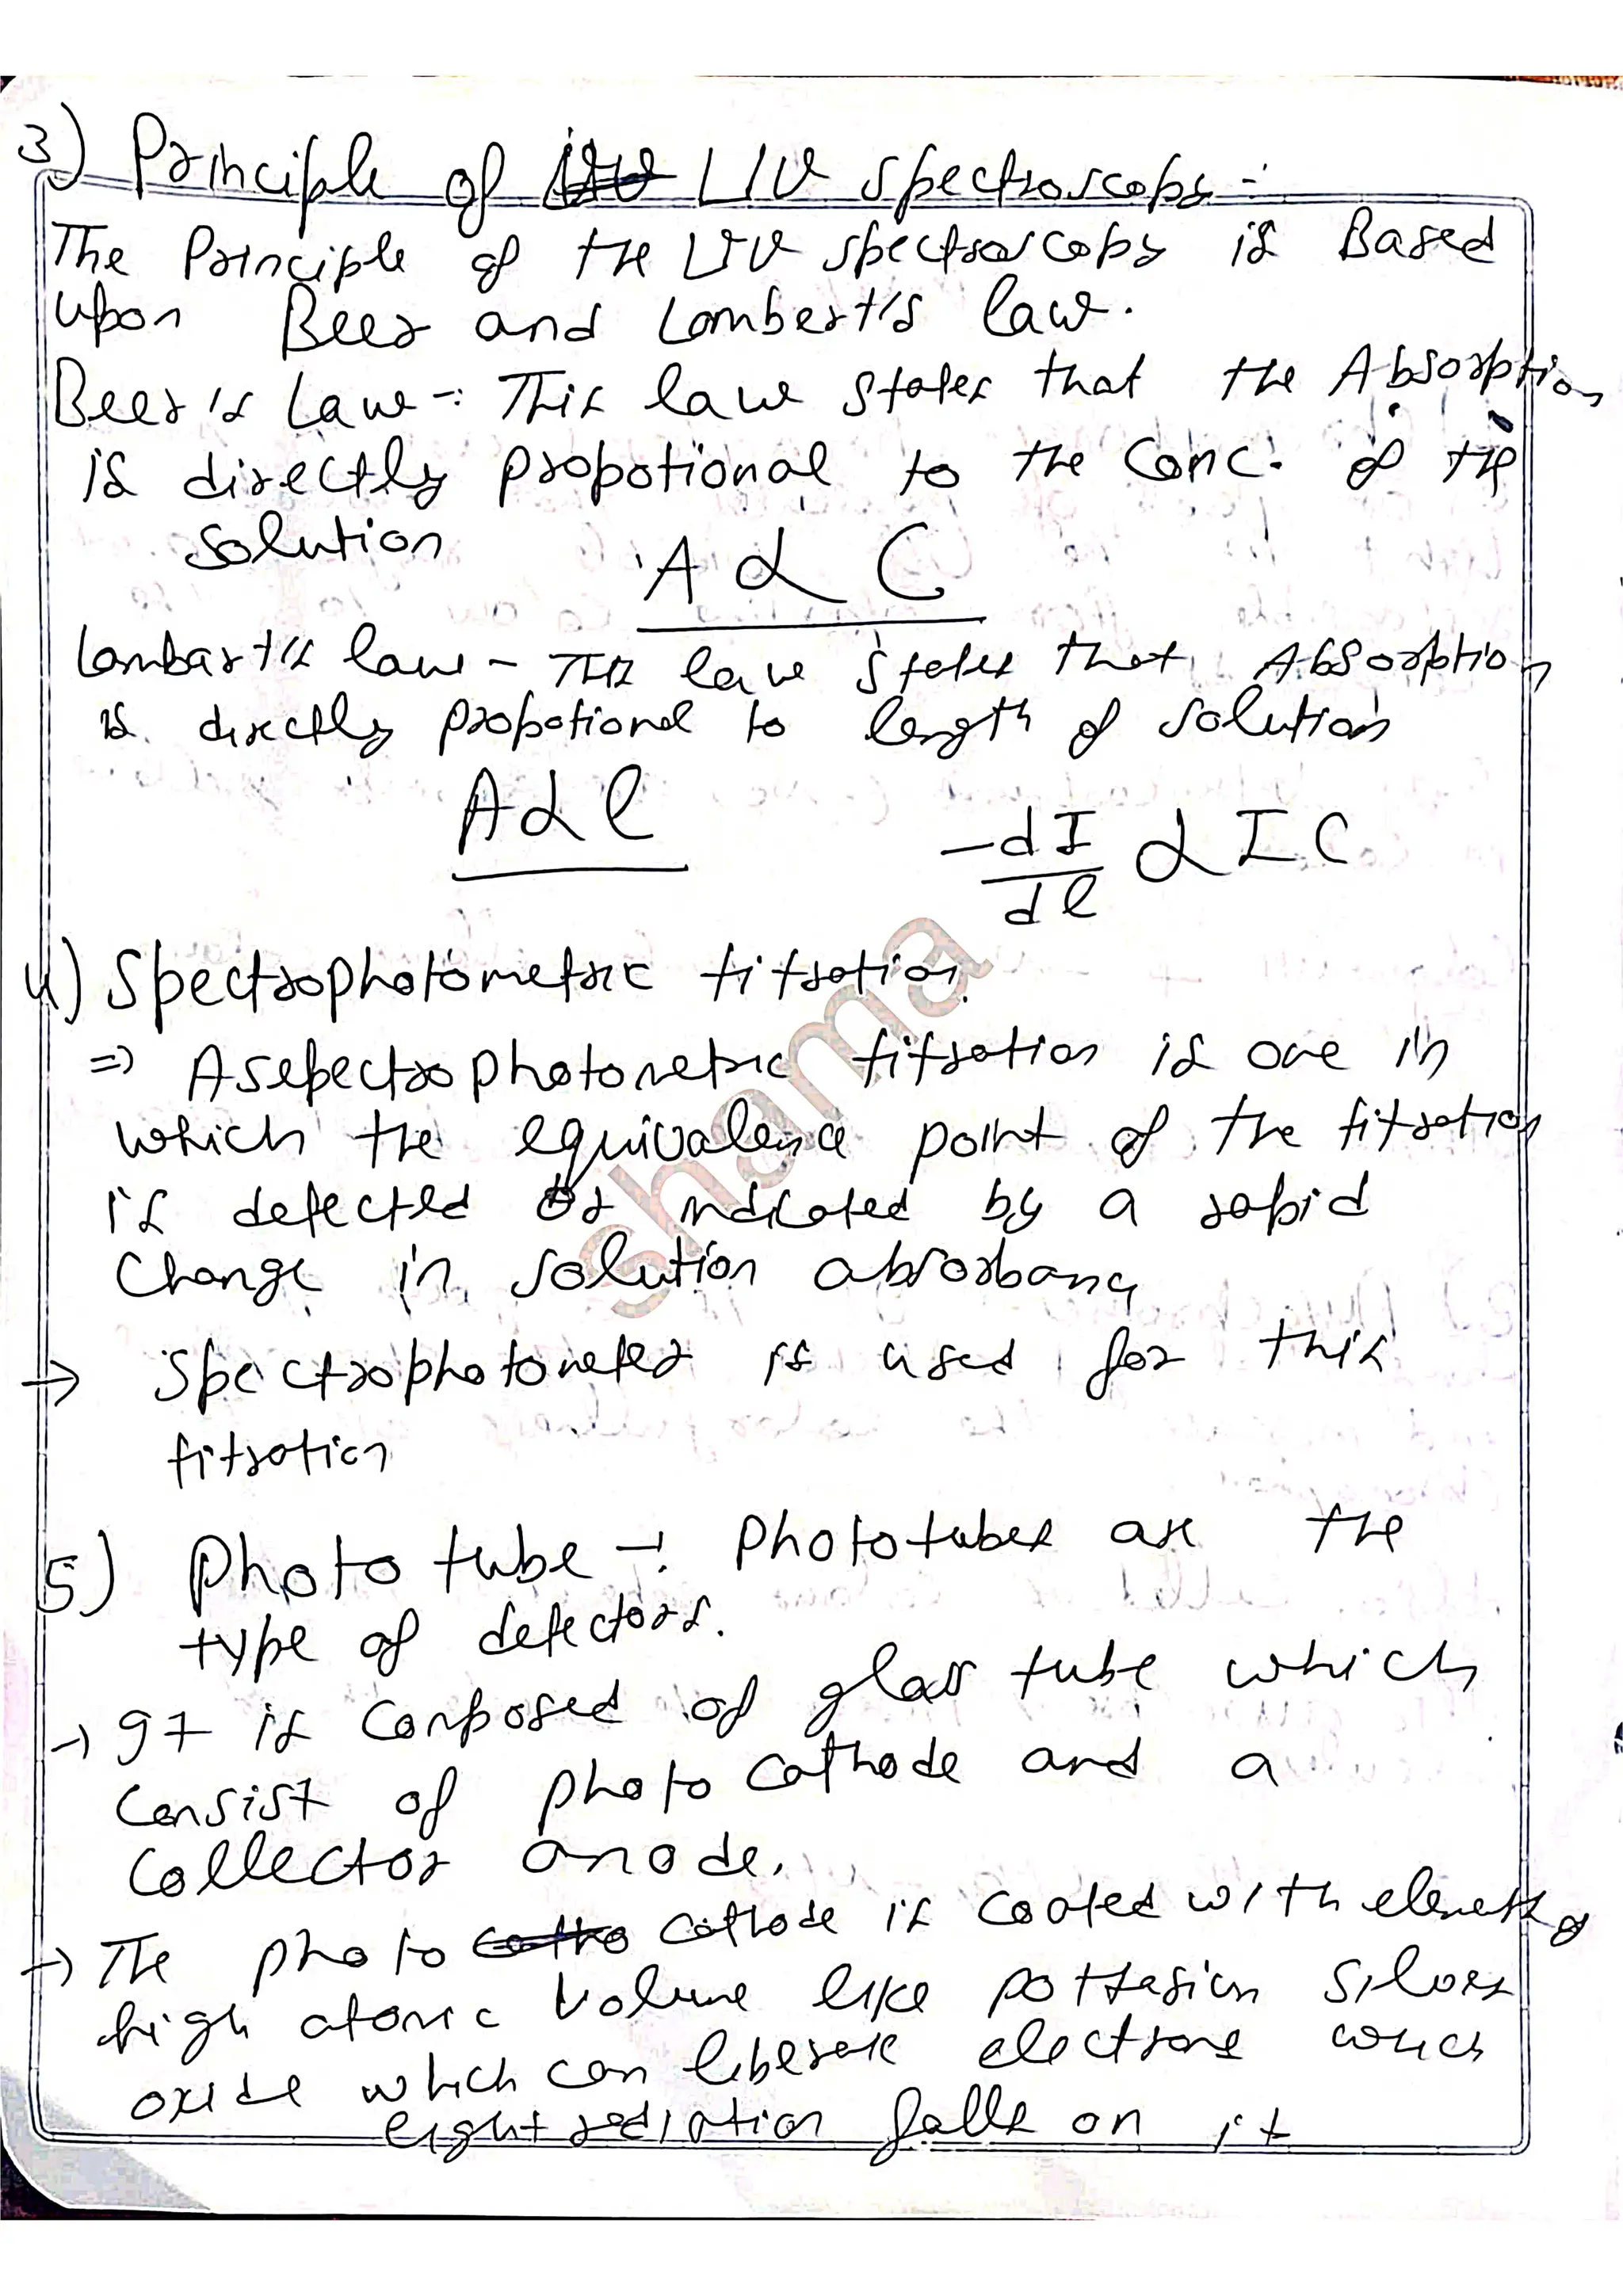 3) Principle of UV spectroscopy :-
The Principle of the UV spectroscopy is Based
upon Beer and Lambert's law.
Beer's Law :- This law states that the Absorption
is directly propotional to the Conc. of the
solution
A α C
Lambart's law - This law states that Absorption
is directly propotional to length of solution
A α l
-dI/dl α I C
4) Spectrophotometric titration
=> A sepectrophotometric titration is one in
which the equivalence point of the titration
is detected or indicated by a rapid
Change in solution absorbance
→ Spectrophotometer is used for this
titration
5) Photo tube -: Phototubes are the
type of detectors.
→ It is Composed of glass tube which
Consist of photo Cathode and a
Collector anode.
→ The photo Cathode is Coated with elements of
high atomic Volume like pottasium Silver
oxide which can liberate electrons which
light radiation falls on it
shama